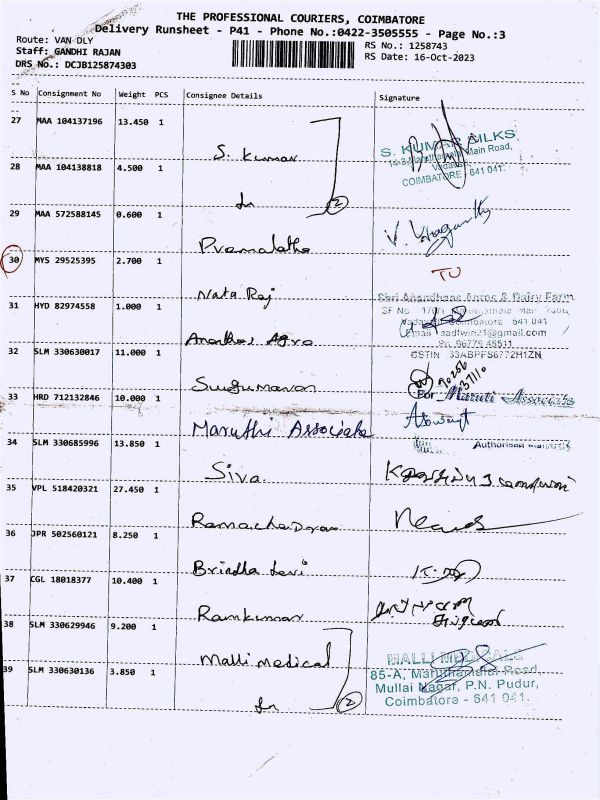 THE PROFESSIONAL COURIERS, COIMBATORE
Delivery Runsheet - P41 - Phone No.:0422-3505555 - Page No.:3
Route: VAN DLY
Staff: GANDHI RAJAN
DRS No.: DCJB125874303
RS No.: 1258743
RS Date: 16-Oct-2023
S No Consignment No Weight PCS Consignee Details Signature
27 MAA 104137196 13.450 1
S. Kumar
S. KUMAR SILKS
Main Road,
COIMBATORE - 641 041.
28 MAA 104138818 4.500 1
2
29 MAA 572588145 0.600 1
Premalatha
V.
30 MYS 29525395 2.700 1
Nata Raj
TU
31 HYD 82974558 1.000 1
Ananthas Agro
Shri Ananthaas Agros & Dairy Farm
Coimbatore 641 041
GSTIN : 33ABPFS6772H1ZN
32 SLM 330630017 11.000 1
Sugumaran
33 HRD 712132846 10.000 1
Maruthi Associate
For Maruti Associates
Aswant
Authorised
34 SLM 330685996 13.850 1
Siva
35 VPL 518420321 27.450 1
Ramachadran
36 JPR 502560121 8.250 1
Brindha Devi
37 CGL 18018377 10.400 1
Ramkumar
38 SLM 330629946 9.200 1
Malli medical
MALLI MEDICALS
85-A, Maruthamalai Road,
Mullai Nagar, P.N. Pudur,
Coimbatore - 641 041.
39 SLM 330630136 3.850 1
2